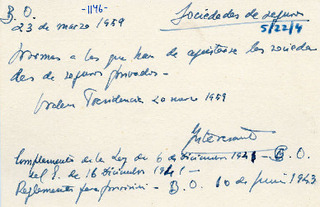 B. O. -1146- Sociedades de seguros
23 de marzo 1959 5/22/4
Normas a las que han de ajustarse las socieda
des de seguros privados -
Orden Presidencia 20 marzo 1959
Interesante
Complemento de la Ley de 6 de Diciembre 1941 - B. O.
del E. de 16 Diciembre 1941 -
Reglamento para - B. O. 10 de Junio 1943